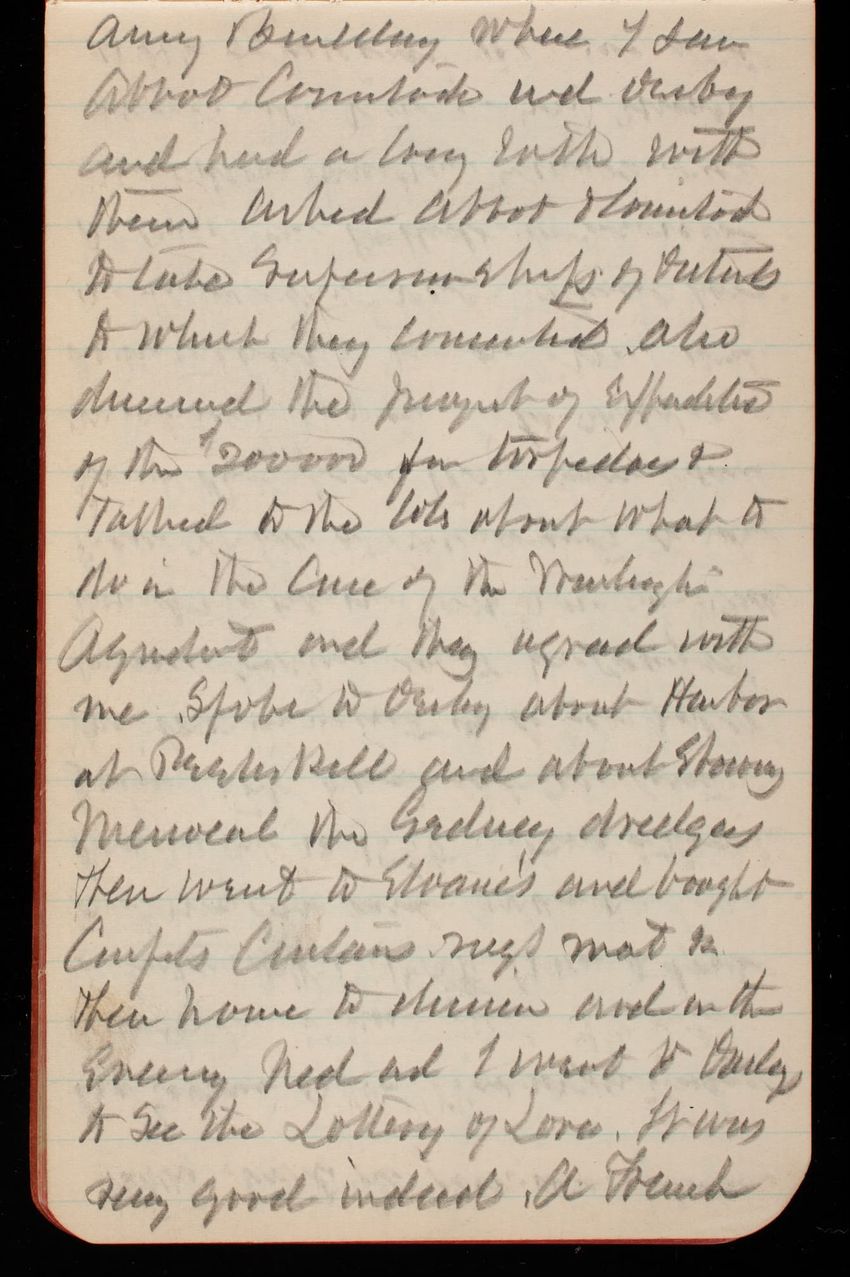 Army Building where I saw
Abbot Comstock and Derby
and had a long talk with
them Asked Abbot & Comstock
to take Supervisorships of Districts
to which they consented. Also
discussed the project of Expenditure
of the $200000 for torpedoes &
Talked to the Cols about what to
do in the Case of the Washington
Aqueduct and they agreed with
me. Spoke to Derby about Harbor
at Peekskill and about Showing
the Gedney dredges
then went to Sloane's and bought
Carpets Curtains rugs mat &c
then home to dinner and in the
Evening Ned and I went to Dalys
to see the Lottery of Love. It was
very good indeed. A French